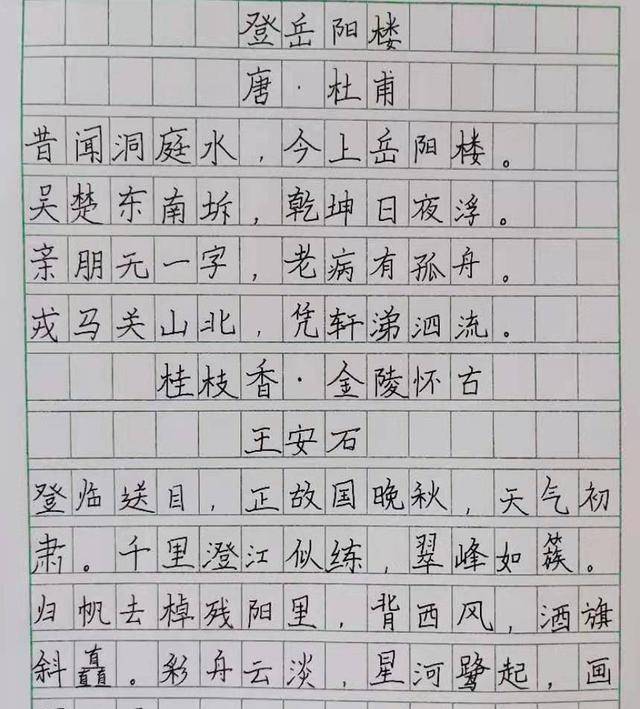 登岳阳楼
唐·杜甫
昔闻洞庭水,今上岳阳楼。
吴楚东南坼,乾坤日夜浮。
亲朋无一字,老病有孤舟。
戎马关山北,凭轩涕泗流。
桂枝香·金陵怀古
王安石
登临送目,正故国晚秋,天气初
肃。千里澄江似练,翠峰如簇。
归帆去棹残阳里,背西风,酒旗
斜矗。彩舟云淡,星河鹭起,画